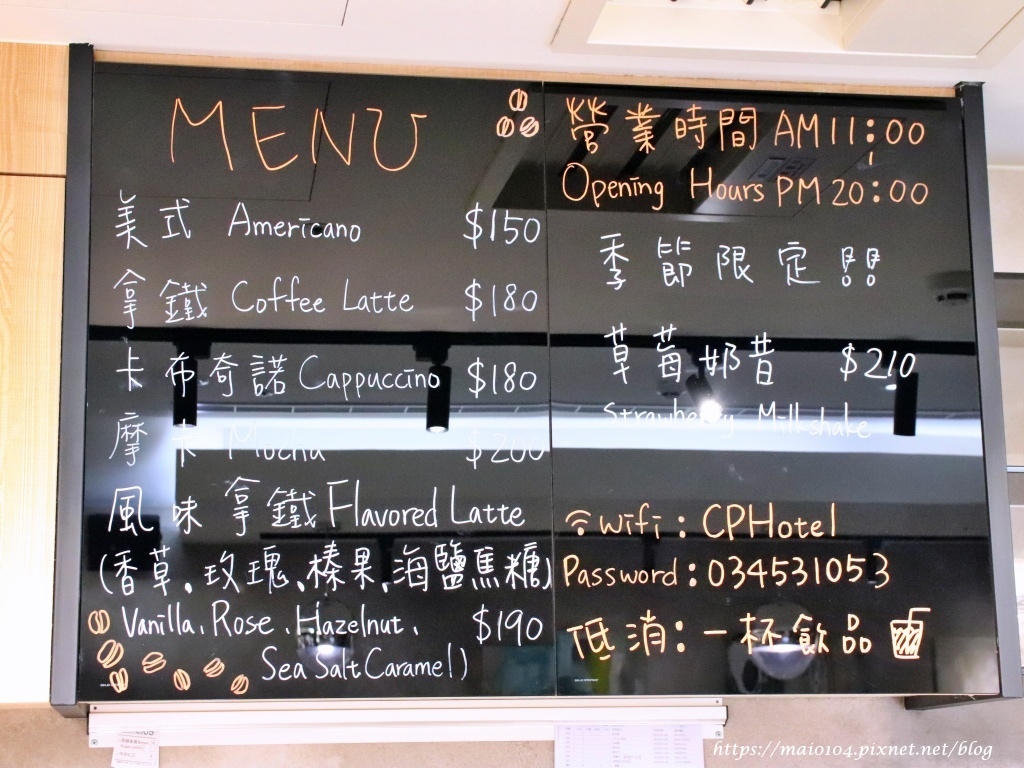 MENU
美式 Americano $150
拿鐵 Coffee Latte $180
卡布奇諾 Cappuccino $180
摩卡 Mocha $200
風味拿鐵 Flavored Latte
(香草、玫瑰、榛果、海鹽焦糖)
Vanilla、Rose、Hazelnut、 $190
Sea Salt Caramel)
營業時間 AM11:00
Opening Hours PM20:00
季節限定!!
草莓奶昔 $210
Strawberry Milkshake
wifi: CPHotel
Password: 034531053
低消:一杯飲品
https://maio104.pixnet.net/blog